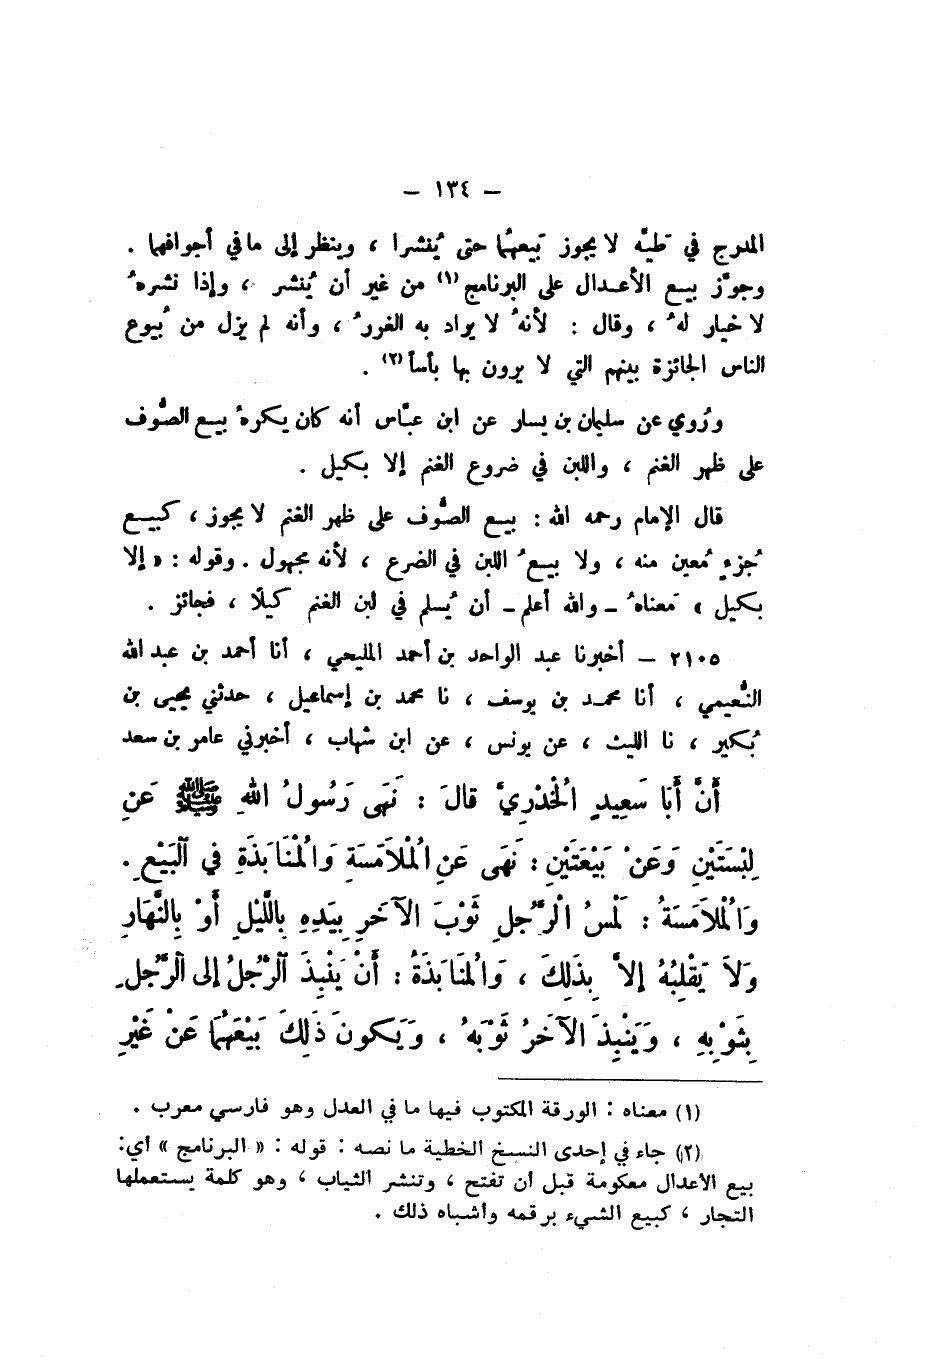 — ١٣٤ —
المدرج في طيِّه لا يجوز بَيعهُما حتى يُنشرا ، وينظر إلى ما في أجوافهما .
وجوَّز بيع الأعدال على البرنامج (١) من غير أن يُنشر ، وإذا نشرهُ
لا خيار لهُ ، وقال : لأنهُ لا يراد به الغررُ ، وأنه لم يزل من بُيوع
الناس الجائزة بينهم التي لا يرون بها بأساً (٢) .
ورُوي عن سليمان بن يسار عن ابن عبَّاس أنه كان يكرهُ بيع الصُّوف
على ظهر الغنم ، واللبن في ضروع الغنم إلا بكيل .
قال الإمام رحمه الله : بيع الصُّوف على ظهر الغنم لا يجوز ، كبيع
جُزءٍ مُعين منه ، ولا بيعُ اللبن في الضرع ، لأنه مجهول . وقوله : « إلا
بكيل » مَعناهُ – والله أعلم – أن يُسلم في لبن الغنم كيلًا ، فجائز .
٢١٠٥ – أخبرنا عبد الواحد بن أحمد المليحي ، أنا أحمد بن عبد الله
النُّعيمي ، أنا محمد بن يوسف ، نا محمد بن إسماعيل ، حدثني يحيى بن
بُكير ، نا الليث ، عن يونس ، عن ابن شهاب ، أخبرني عامر بن سعد
أَنَّ أَبَا سَعِيدٍ الْخُدْرِيَّ قالَ : نَهَى رَسُولُ اللهِ ﷺ عَنِ
لِبْسَتَيْنِ وَعَنْ بَيْعَتَيْنِ : نَهَى عَنِ الْمُلاَمَسَةِ وَالْمُنَابَذَةِ فِي الْبَيْعِ .
وَالْمُلاَمَسَةُ : لَمْسُ الْرَّجُلِ ثَوْبَ الآخَرِ بِيَدِهِ بِاللَّيْلِ أَوْ بِالنَّهَارِ
وَلاَ يَقْلِبُهُ إلاَّ بِذَلِكَ ، وَالْمُنَابَذَةُ : أَنْ يَنْبِذَ الرَّجُلُ إلى الرَّجُلِ
بِثَوْبِهِ ، وَيَنْبِذَ الآخَرُ ثَوْبَهُ ، وَيَكونَ ذَلِكَ بَيْعَهُمَا عَنْ غَيْرِ
(١) معناه : الورقة المكتوب فيها ما في العدل وهو فارسي معرب .
(٢) جاء في إحدى النسخ الخطية ما نصه : قوله : « البرنامج » أي :
بيع الأعدال معكومة قبل أن تفتح ، وتنشر الثياب ، وهو كلمة يستعملها
التجار ، كبيع الشيء برقمه وأشباه ذلك .